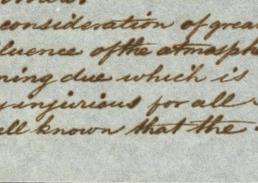 consideration of grea
fluence of the atmosph
ning due which is
injurious for all
ell known that the